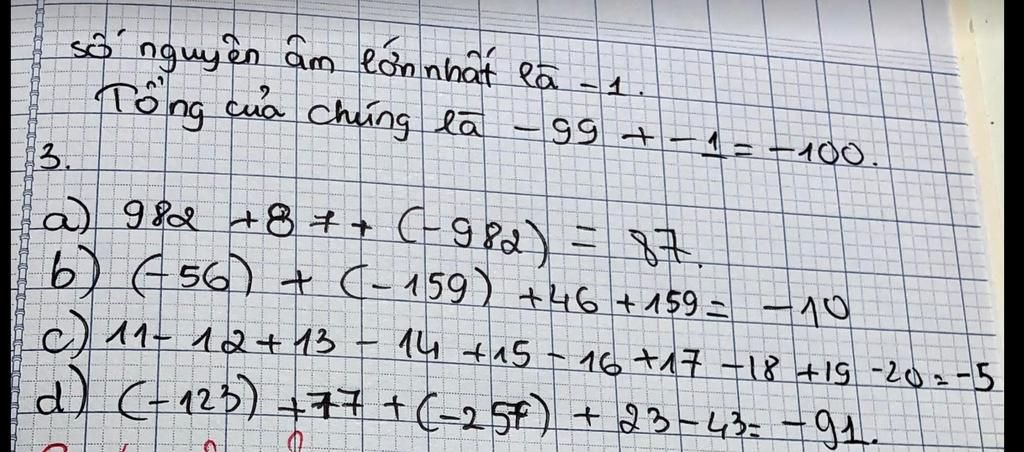 số nguyên âm lớn nhất là -1.
Tổng của chúng là -99 + -1 = -100.
3.
a) 982 + 87 + (-982) = 87.
b) (-56) + (-159) + 46 + 159 = -10
c) 11 - 12 + 13 - 14 + 15 - 16 + 17 - 18 + 19 - 20 = -5
d) (-123) + 77 + (-257) + 23 - 43 = -91.